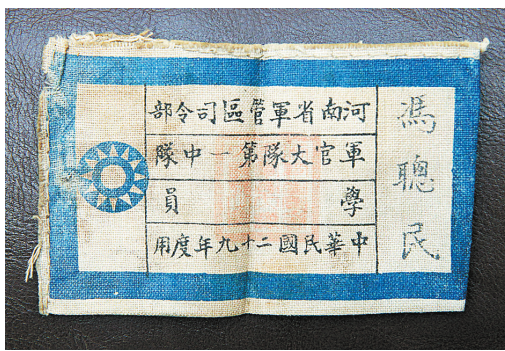 馮聰民
河南省軍管區司令部
軍官大隊第一中隊
學員
中華民國二十九年度用